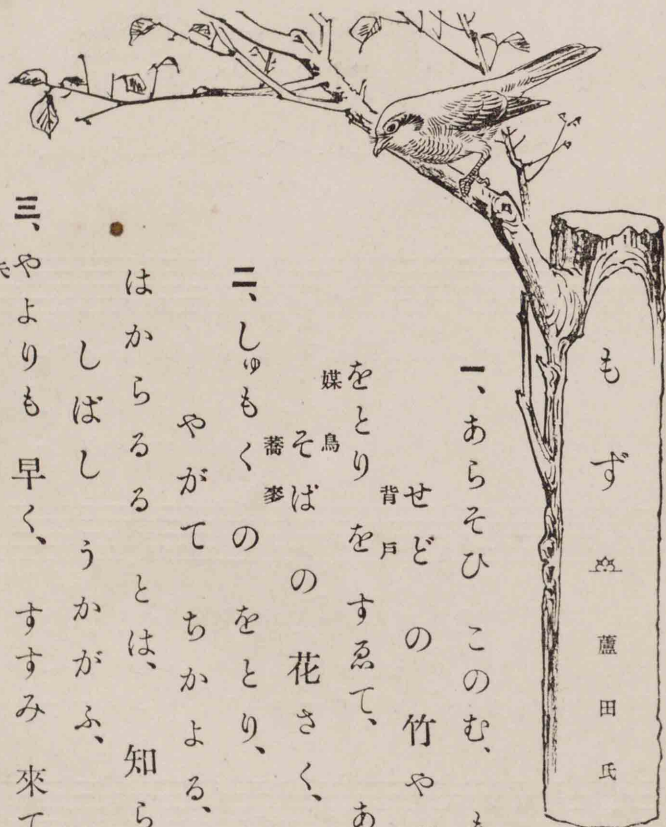 もず
蘆田氏
一、あらそひ このむ、
せどの 竹や
背戸
をとりを すゑて、 あ
媒鳥
そばの 花さく、
蕎麥
二、しゅもくの をとり、
やがて ちかよる、
はからるる とは、 知ら
しばし うかがふ、
三、やよりも 早く、 すすみ 來て
矢